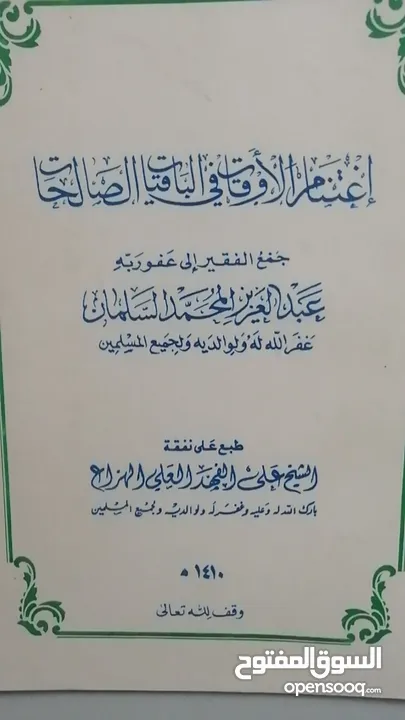 إغتنام الأوقات في الباقيات الصالحات
جمع الفقير إلى عفو ربه
عبد العزيز المحمد السلمان
غفر الله له ولوالديه ولجميع المسلمين
طبع على نفقة
الشيخ علي الفهد العلي الهزاع
بارك الله له وعليه وغفر له ولوالديه ولجميع المسلمين
١٤١٠ هـ
وقف لله تعالى
السوق المفتوح
opensooq.com